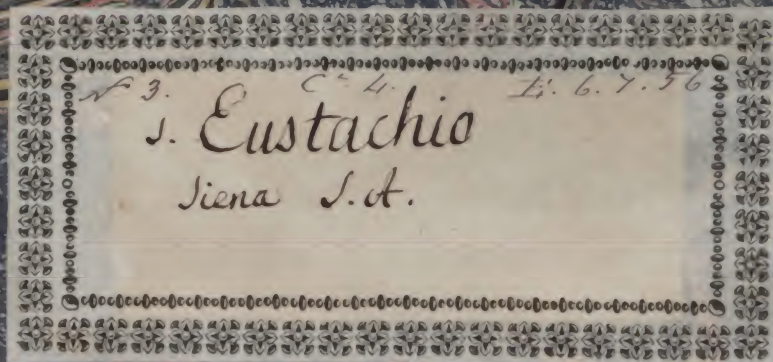 N 3. C 4. L. 6.7.56
S. Eustachio
Siena S.A.